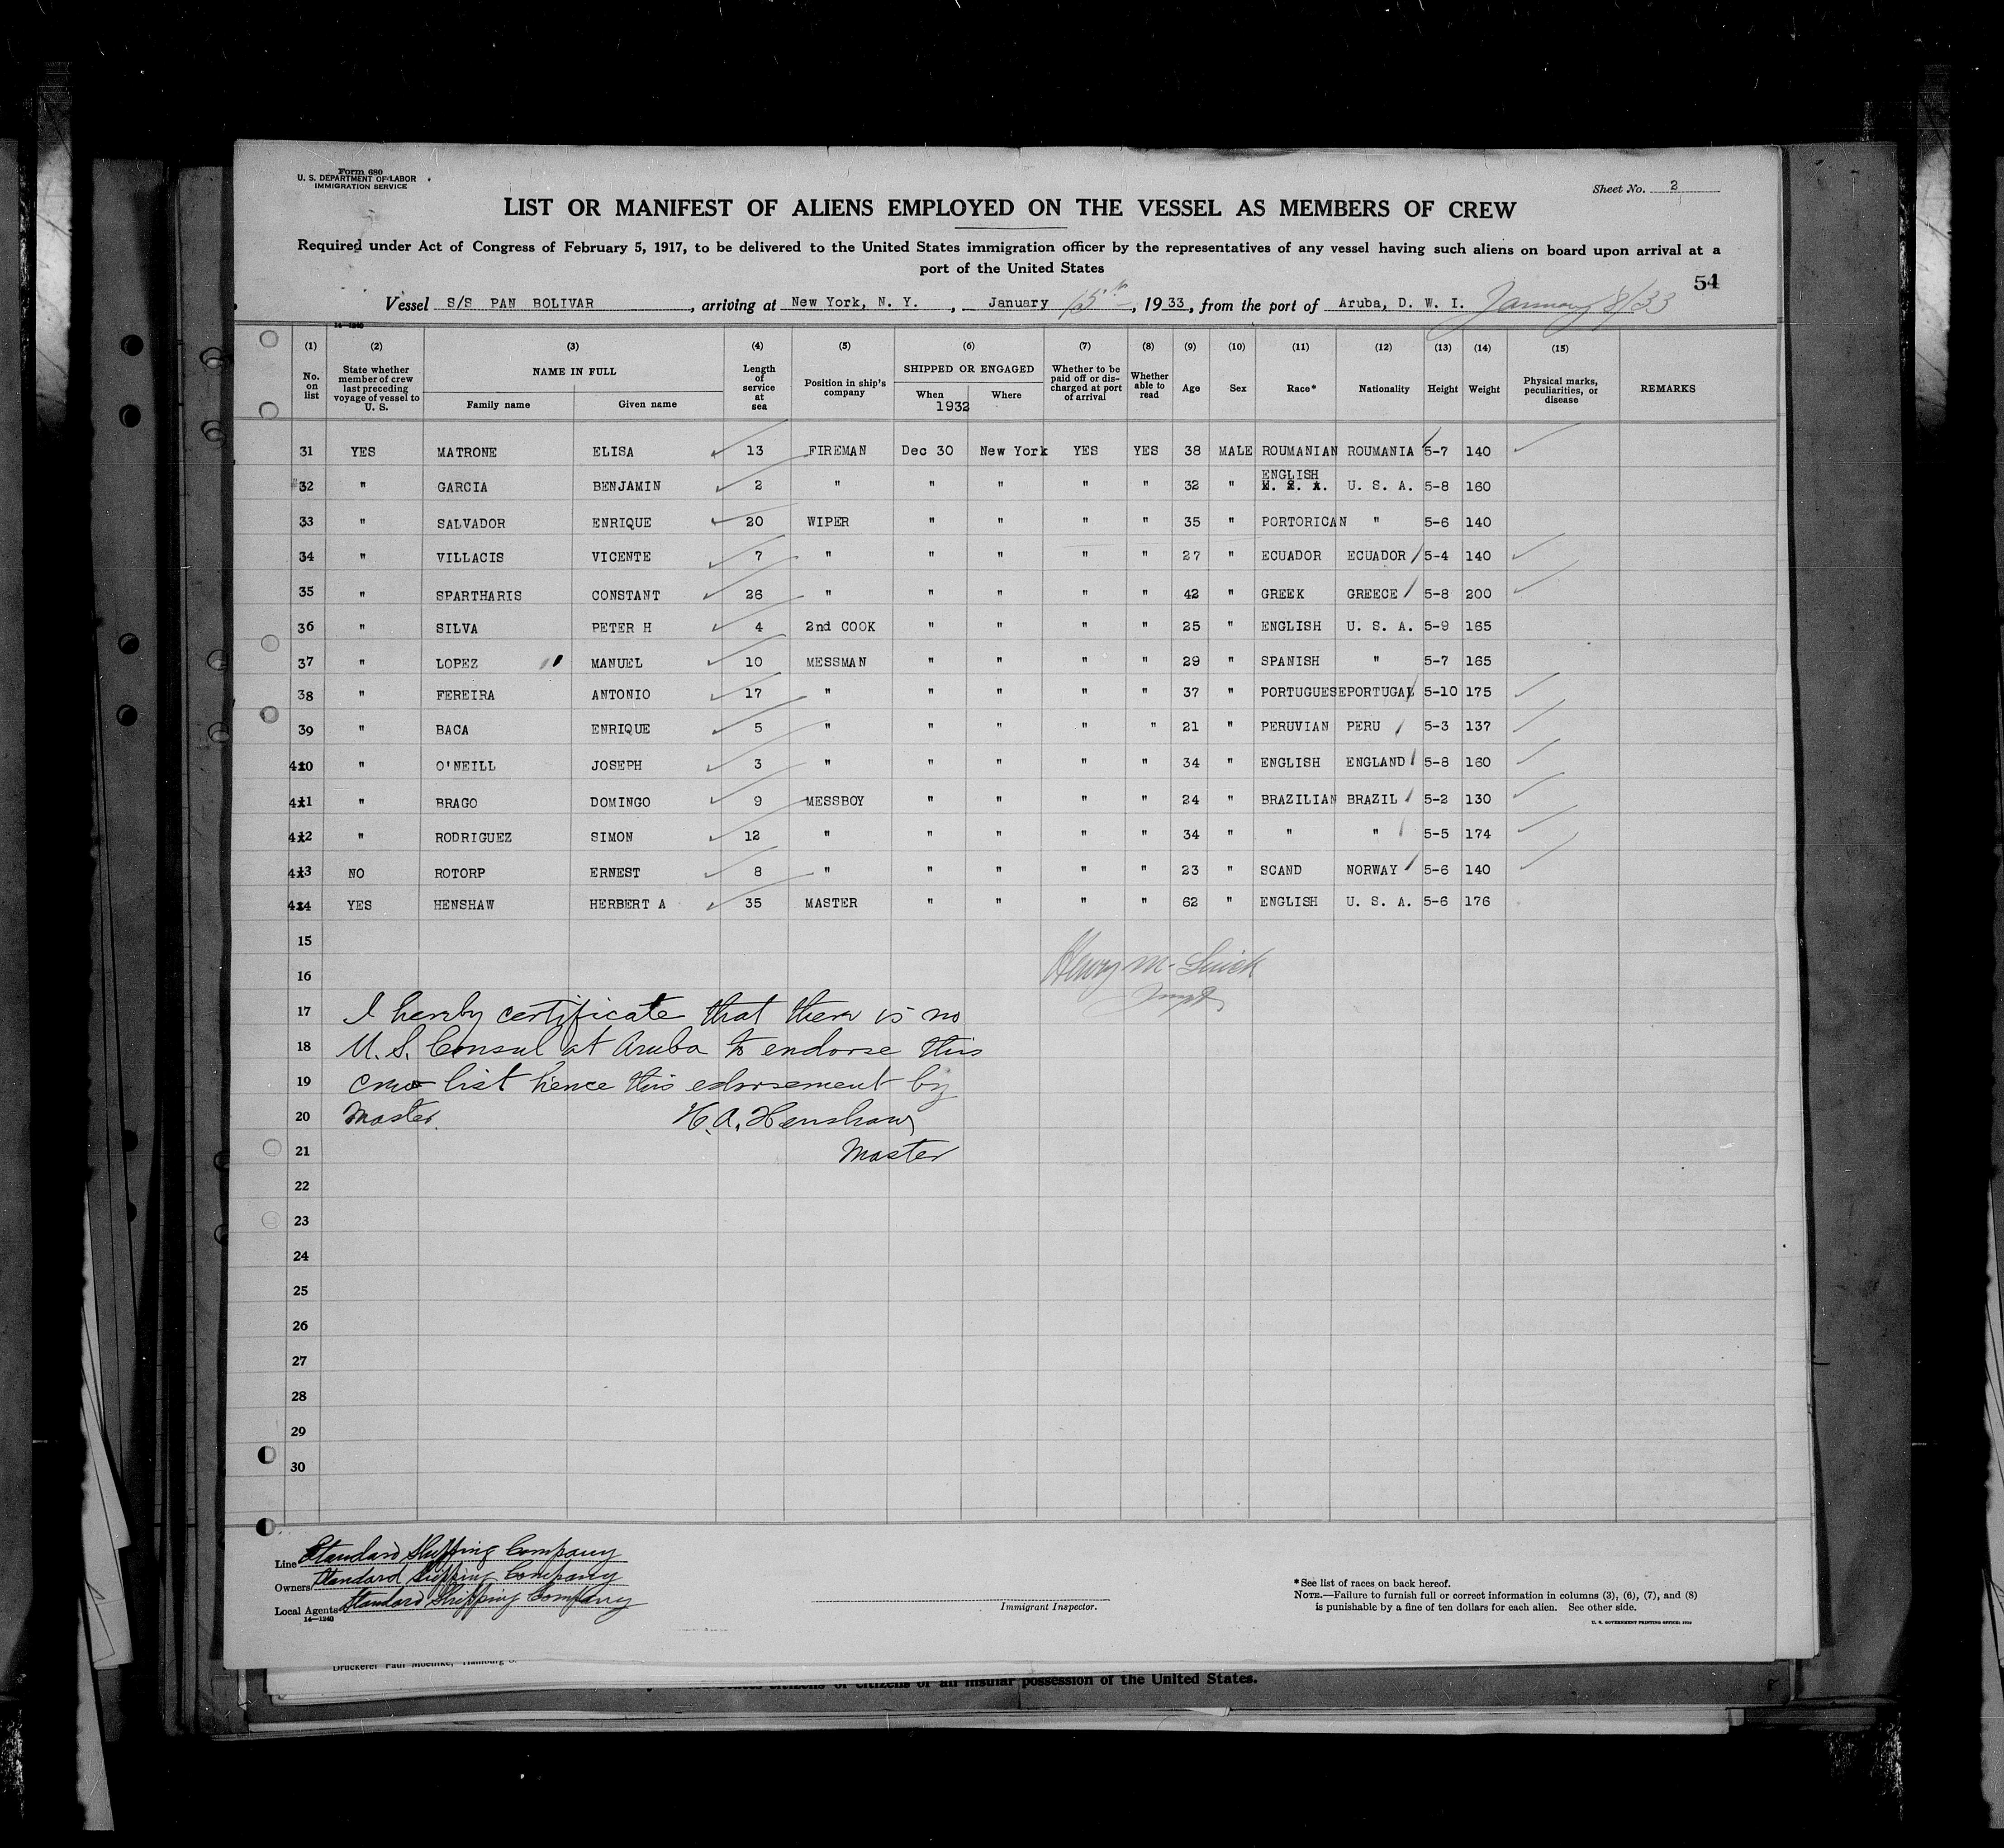 Form 680
U. S. DEPARTMENT OF LABOR
IMMIGRATION SERVICE
Sheet No. 2
LIST OR MANIFEST OF ALIENS EMPLOYED ON THE VESSEL AS MEMBERS OF CREW
Required under Act of Congress of February 5, 1917, to be delivered to the United States immigration officer by the representatives of any vessel having such aliens on board upon arrival at a
port of the United States
54
Vessel S/S PAN BOLIVAR, arriving at New York, N. Y., January 15th, 1933, from the port of Aruba, D. W. I. January 8/33
14—1240
(1) (2) (3) (4) (5) (6) (7) (8) (9) (10) (11) (12) (13) (14) (15)
No. on list State whether member of crew last preceding voyage of vessel to U. S. NAME IN FULL Family name Given name Length of service at sea Position in ship's company SHIPPED OR ENGAGED When 1932 Where Whether to be paid off or discharged at port of arrival Whether able to read Age Sex Race* Nationality Height Weight Physical marks, peculiarities, or disease REMARKS
31 YES MATRONE ELISA 13 FIREMAN Dec 30 New York YES YES 38 MALE ROUMANIAN ROUMANIA 5-7 140
32 " GARCIA BENJAMIN 2 " " " " " 32 " ENGLISH U. S. A. U. S. A. 5-8 160
33 " SALVADOR ENRIQUE 20 WIPER " " " " 35 " PORTORICAN " 5-6 140
34 " VILLACIS VICENTE 7 " " " " " 27 " ECUADOR ECUADOR 5-4 140
35 " SPARTHARIS CONSTANT 26 " " " " " 42 " GREEK GREECE 5-8 200
36 " SILVA PETER H 4 2nd COOK " " " " 25 " ENGLISH U. S. A. 5-9 165
37 " LOPEZ MANUEL 10 MESSMAN " " " " 29 " SPANISH " 5-7 165
38 " FEREIRA ANTONIO 17 " " " " " 37 " PORTUGUESE PORTUGAL 5-10 175
39 " BACA ENRIQUE 5 " " " " " 21 " PERUVIAN PERU 5-3 137
40 " O'NEILL JOSEPH 3 " " " " " 34 " ENGLISH ENGLAND 5-8 160
41 " BRAGO DOMINGO 9 MESSBOY " " " " 24 " BRAZILIAN BRAZIL 5-2 130
42 " RODRIGUEZ SIMON 12 " " " " " 34 " " " 5-5 174
43 NO ROTORP ERNEST 8 " " " " " 23 " SCAND NORWAY 5-6 140
44 YES HENSHAW HERBERT A 35 MASTER " " " " 62 " ENGLISH U. S. A. 5-6 176
15
16 Henry M.
17 I hereby certificate that there is no
18 U. S. Consul at Aruba to endorse this
19 crew list hence this edorsement by
20 Master. H. A. Henshaw
21 Master
22
23
24
25
26
27
28
29
30
Line Standard Shipping Company
Owners Standard Shipping Company
Local Agents Standard Shipping Company
14—1240
Immigrant Inspector.
*See list of races on back hereof.
NOTE.—Failure to furnish full or correct information in columns (3), (6), (7), and (8)
is punishable by a fine of ten dollars for each alien. See other side.
U. S. GOVERNMENT PRINTING OFFICE:
Druckerei Paul
citizens of an insular possession of the United States.